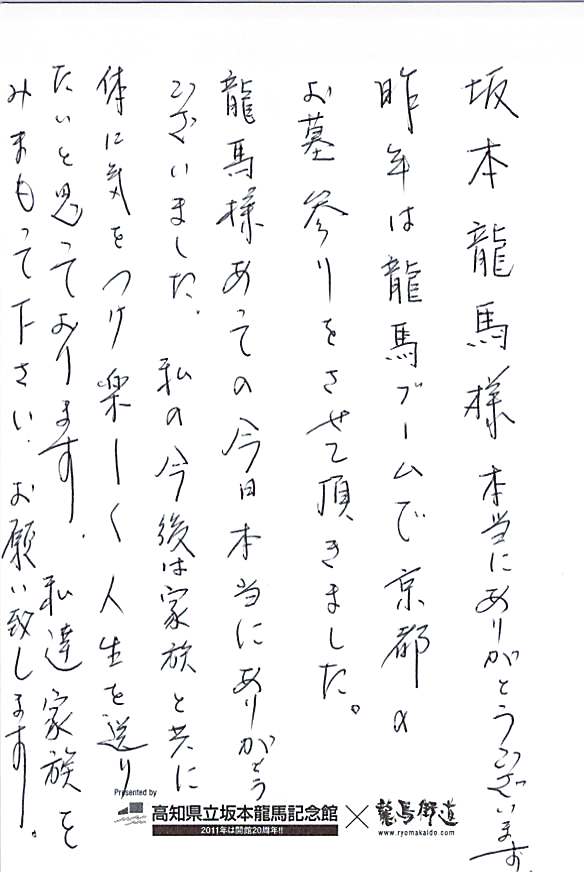 坂本龍馬様 本当にありがとうございます。
昨年は龍馬ブームで京都の
お墓参りをさせて頂きました。
龍馬様あっての今日本当にありがとう
ございました。 私の今後は家族と共に
体に気をつけ楽しく人生を送り
たいと思っております。 私達家族を
みまもって下さい。お願い致します。
Presented by
高知県立坂本龍馬記念館
2011年は開館20周年!!
×
龍馬街道
www.ryomakaido.com